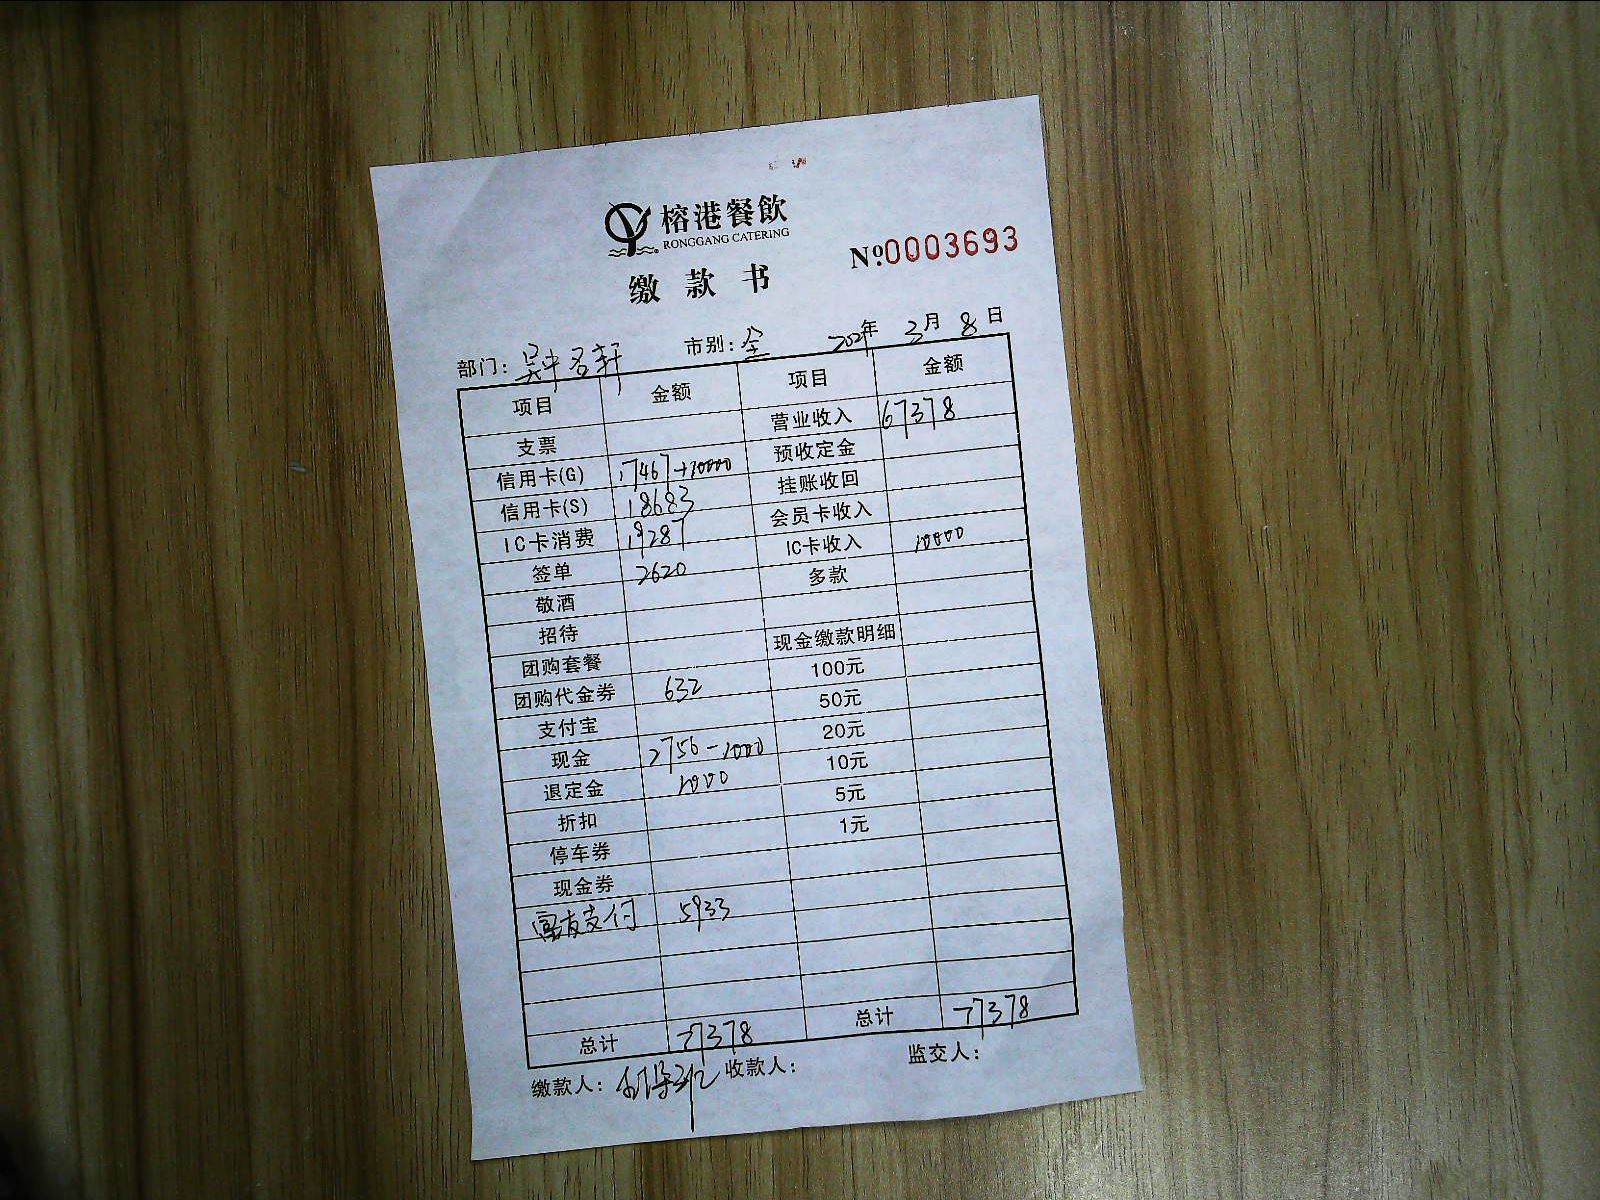 榕港餐飲
RONGGANG CATERING
№0003693
缴款书
部门: 吴中名轩 市别: 全 202年 3月 8日
项目 金额 项目 金额
支票 营业收入 67378
信用卡(G) 17467+10000 预收定金
信用卡(S) 18683 挂账收回
IC卡消费 19287 会员卡收入
签单 2620 IC卡收入 10000
敬酒 多款
招待
团购套餐 现金缴款明细
团购代金券 632 100元
支付宝 50元
现金 2756-1000 20元
退定金 1000 10元
折扣 5元
停车券 1元
现金券
富友支付 5933
总计 77378 总计 77378
缴款人: 收款人: 监交人: